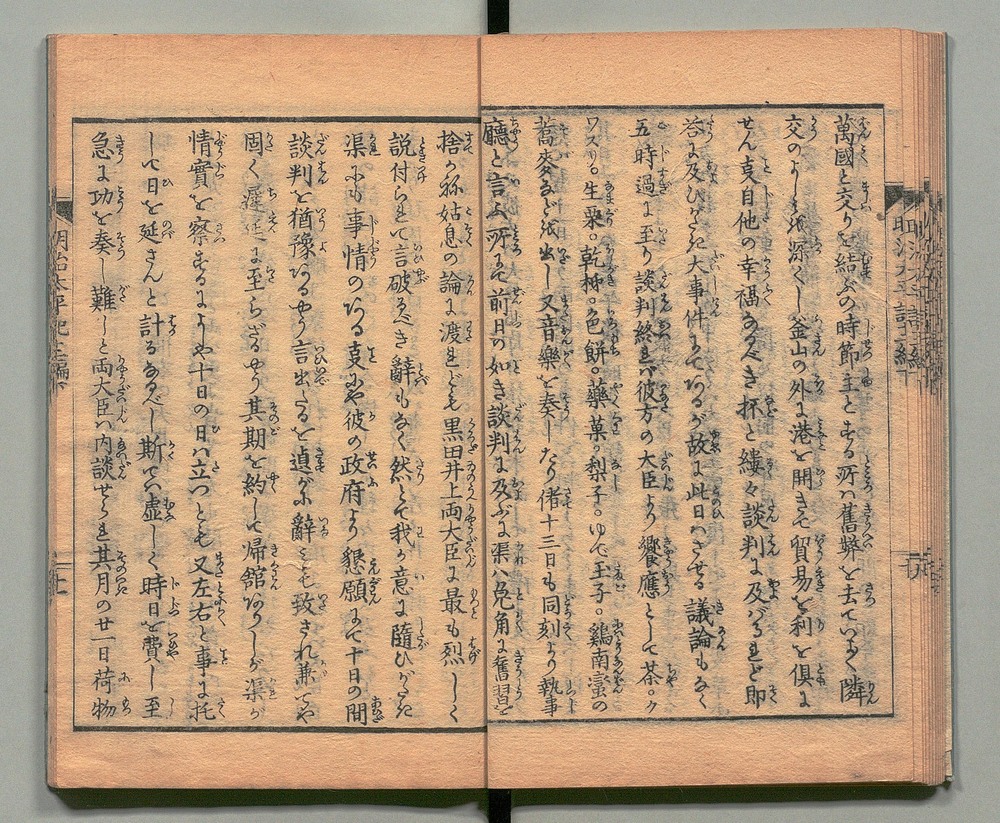 萬國と交りを結ぶの時節主とする所ハ舊弊を去ていよく隣
交のよしミを深くし釜山の外に港を開きて貿易を利を俱に
せん支自他の幸福なるべき杯と縷々談判に及バるれど即
答に及びがたき大事件にてあるが故に此日ハさせる議論もなく
五時過に至り談判終れバ彼方の大臣より饗應として茶。ク
ワスリ。生栗。乾柿。色餅。藥菓。梨子。ゆで玉子。鷄南蛮の
蕎麥などを出し又音樂を奏したり偖十三日も同刻より執事
廳と言ふ所にて前日の如き談判に及ぶに渠ハ兎角に舊習を
捨かね姑息の論に渡れども黒田井上両大臣ハ最も烈しく
説付られて言破るべき辭もなく然とて我が意に隨ひがたき
渠にも事情のある支にや彼の政府より懇願にて十日の間
談判を猶豫あるやう言出たるを遉が辭ミも致され兼てや
固く遲延に至らざるやう其期を約して帰舘ありしが渠が
情實を察するによりや十日の日ハ立つとも又左右と事に托
して日を延さんと計るなるべし斯てハ虚しく時日を費し至
急に功を奏し難しと両大臣ハ内談せられ其月の廿一日荷物
明治太平記十二編下